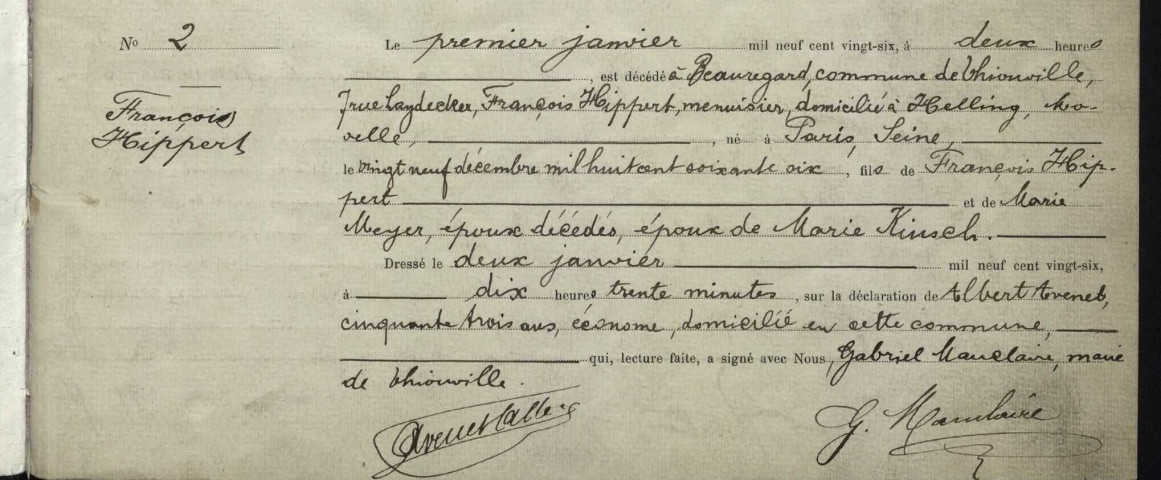 No 2
Le premier janvier mil neuf cent vingt-six, à deux heures
, est décédé à Beauregard, commune de Thionville,
François
Hippert
7 rue Laydecker, François Hippert, menuisier, domicilié à Helling, Mo-
selle, , né à Paris, Seine,
le vingt neuf décembre mil huit cent soixante six , fils de François Hip-
pert et de Marie
Meyer, époux décédés, époux de Marie Kinsch.
Dressé le deux janvier mil neuf cent vingt-six,
à dix heures trente minutes , sur la déclaration de Albert Avenel,
cinquante trois ans, économe, domicilié en cette commune,
qui, lecture faite, a signé avec Nous, Gabriel Mauclaire, maire
de Thionville.
G. Mauclaire